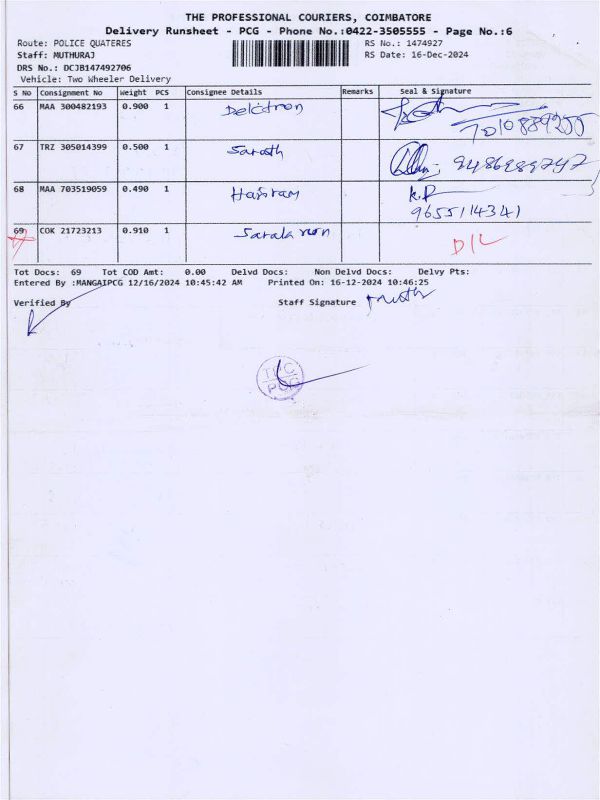 THE PROFESSIONAL COURIERS, COIMBATORE
Delivery Runsheet - PCG - Phone No.:0422-3505555 - Page No.:6
Route: POLICE QUATERES RS No.: 1474927
Staff: MUTHURAJ RS Date: 16-Dec-2024
DRS No.: DCJB147492706
Vehicle: Two Wheeler Delivery
S No Consignment No Weight PCS Consignee Details Remarks Seal & Signature
66 MAA 300482193 0.900 1
67 TRZ 305014399 0.500 1 Sarath
68 MAA 703519059 0.490 1 Hairam K.P
9655114341
69 COK 21723213 0.910 1 D/L
Tot Docs: 69 Tot COD Amt: 0.00 Delvd Docs: Non Delvd Docs: Delvy Pts:
Entered By :MANGAIPCG 12/16/2024 10:45:42 AM Printed On: 16-12-2024 10:46:25
Verified By Staff Signature